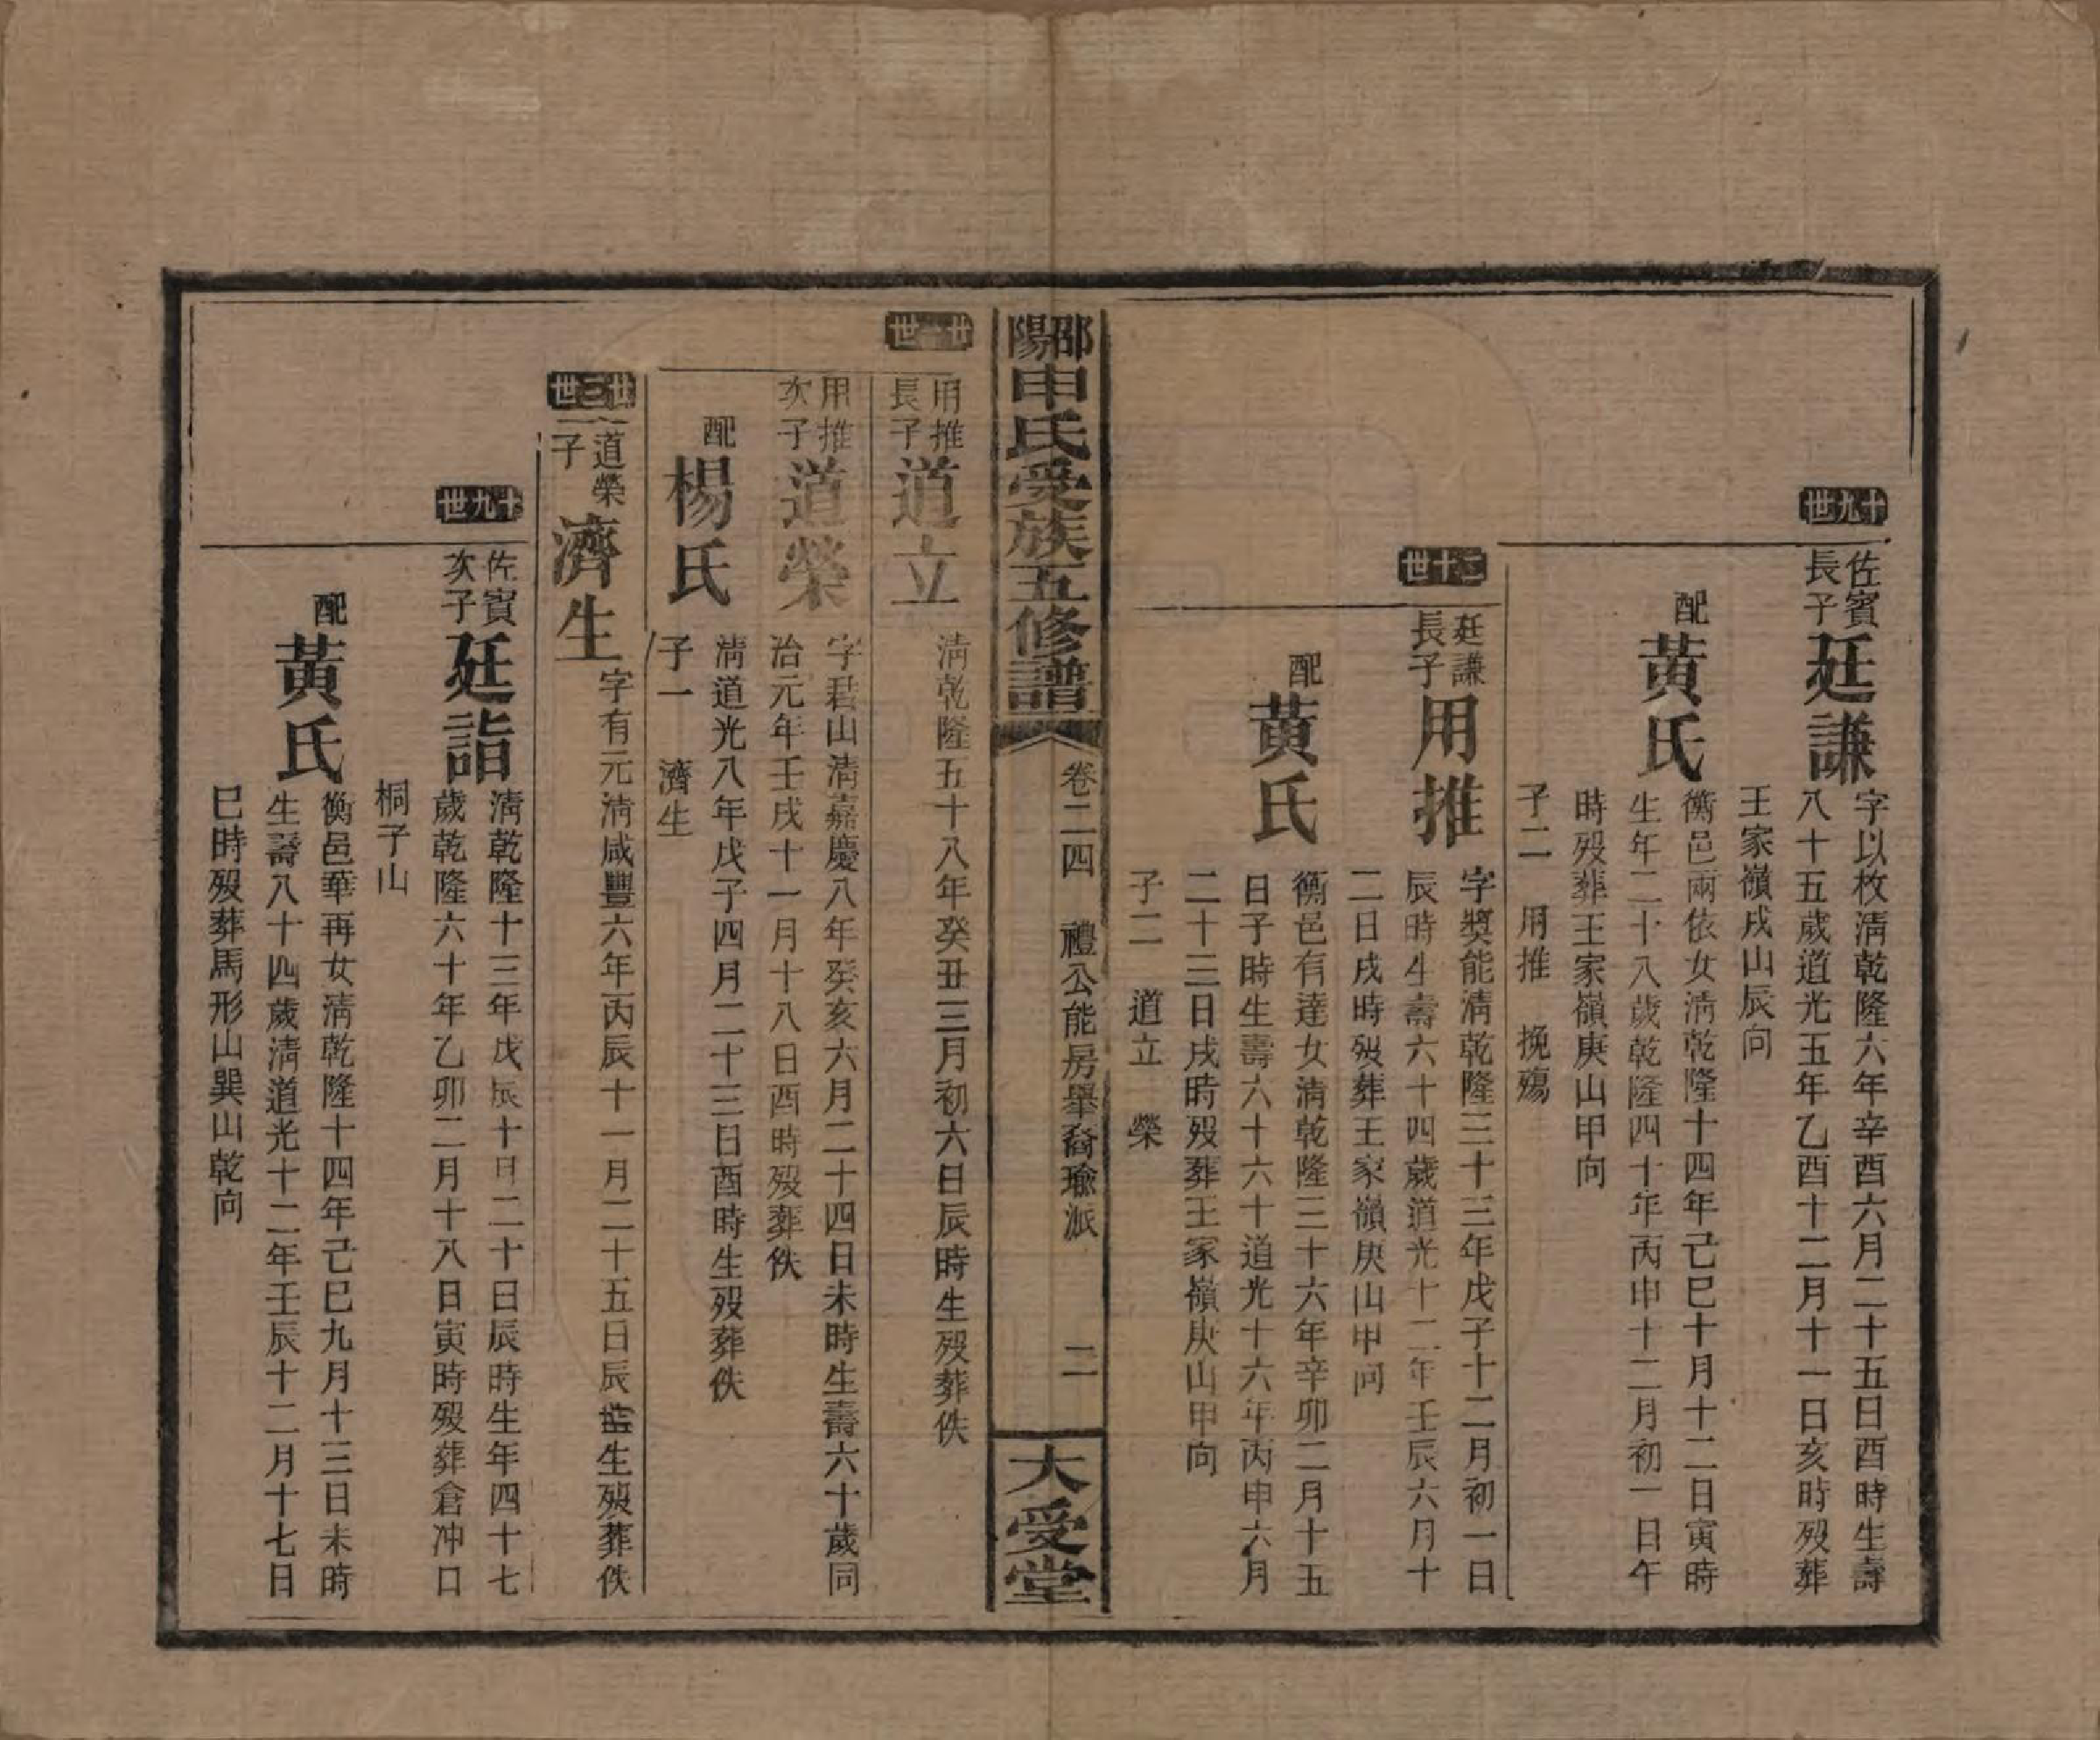 十九世
佐賓長子
廷謙
字以枚淸乾隆六年辛酉六月二十五日酉時生壽
八十五歲道光五年乙酉十二月十一日亥時殁葬
王家嶺戌山辰向
配
黃氏
衡邑兩依女淸乾隆十四年己巳十月十二日寅時
生年二十八歲乾隆四十年丙申十二月初一日午
時殁葬王家嶺庚山甲向
子二 用推 挽殤
二十世
廷謙長子
用推
字獎能淸乾隆三十三年戊子十二月初一日
辰時生壽六十四歲道光十二年壬辰六月十
二日戌時殁葬王家嶺庚山甲向
配
黃氏
衡邑有達女淸乾隆三十六年辛卯二月十五
日子時生壽六十六十道光十六年丙申六月
二十三日戌時殁葬王家嶺庚山甲向
子二 道立 榮
邵陽申氏受族五修譜
卷二四 禮公能房舉裔瑜派 二
大受堂
廿一世
用推長子
道立
淸乾隆五十八年癸丑三月初六日辰時生殁葬佚
用推次子
道榮
字君山淸嘉慶八年癸亥六月二十四日未時生壽六十歲同
治元年壬戌十一月十八日酉時殁葬佚
配
楊氏
淸道光八年戊子四月二十三日酉時生殁葬佚
子一 濟生
世
道榮子
濟生
字有元淸咸豐六年丙辰十一月二十五日辰時生殁葬佚
十九世
佐賓次子
廷詣
淸乾隆十三年戊辰十月二十日辰時生年四十七
歲乾隆六十年乙卯二月十八日寅時殁葬倉冲口
桐子山
配
黃氏
衡邑華再女淸乾隆十四年己巳九月十三日未時
生壽八十四歲淸道光十二年壬辰十二月十七日
巳時殁葬馬形山巽山乾向